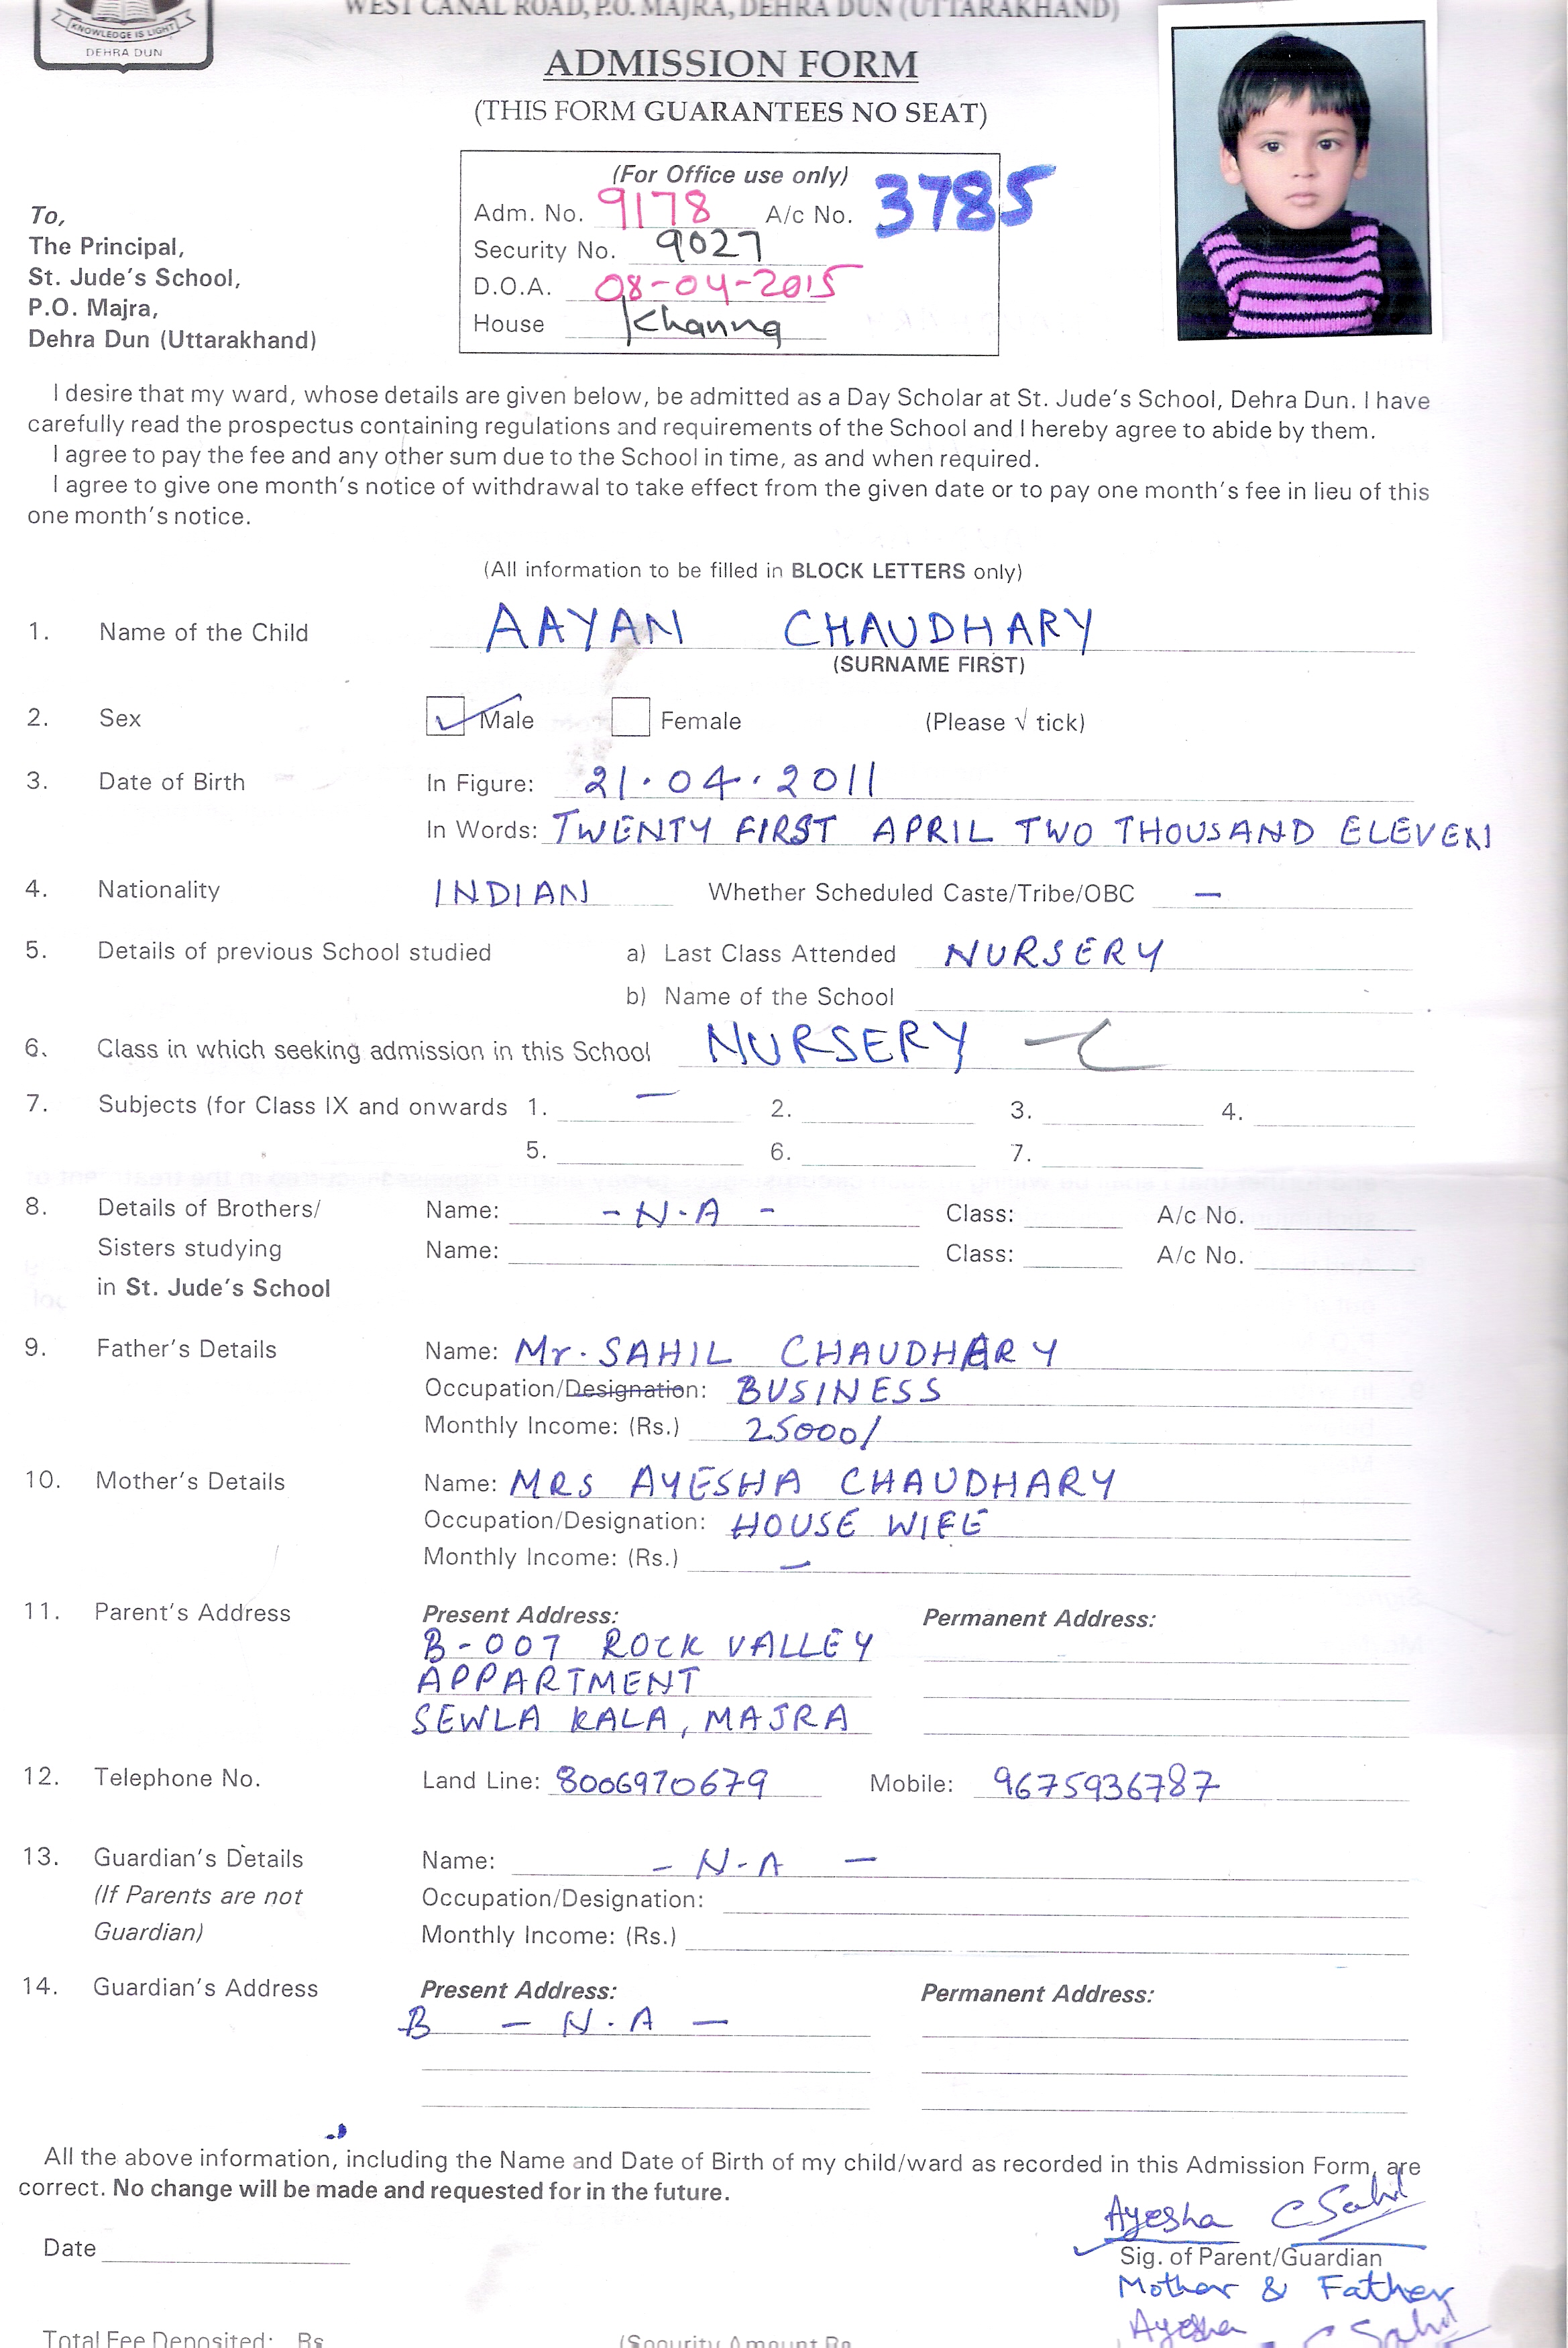 WEST CANAL ROAD, P.O. MAJRA, DEHRA DUN (UTTARAKHAND)
KNOWLEDGE IS LIGHT
DEHRA DUN
ADMISSION FORM
(THIS FORM GUARANTEES NO SEAT)
(For Office use only)
Adm. No. 9178 A/c No. 3785
Security No. 9027
D.O.A. 08-04-2015
House Khanna
To,
The Principal,
St. Jude's School,
P.O. Majra,
Dehra Dun (Uttarakhand)
I desire that my ward, whose details are given below, be admitted as a Day Scholar at St. Jude's School, Dehra Dun. I have
carefully read the prospectus containing regulations and requirements of the School and I hereby agree to abide by them.
I agree to pay the fee and any other sum due to the School in time, as and when required.
I agree to give one month's notice of withdrawal to take effect from the given date or to pay one month's fee in lieu of this
one month's notice.
(All information to be filled in BLOCK LETTERS only)
1. Name of the Child AAYAN CHAUDHARY
(SURNAME FIRST)
2. Sex ✓ Male Female (Please √ tick)
3. Date of Birth In Figure: 21.04.2011
In Words: TWENTY FIRST APRIL TWO THOUSAND ELEVEN
4. Nationality INDIAN Whether Scheduled Caste/Tribe/OBC —
5. Details of previous School studied a) Last Class Attended NURSERY
b) Name of the School
6. Class in which seeking admission in this School NURSERY
7. Subjects (for Class IX and onwards 1. — 2. 3. 4.
5. 6. 7.
8. Details of Brothers/ Name: - N.A - Class: A/c No.
Sisters studying Name: Class: A/c No.
in St. Jude's School
9. Father's Details Name: Mr. SAHIL CHAUDHARY
Occupation/Designation: BUSINESS
Monthly Income: (Rs.) 25000/
10. Mother's Details Name: MRS AYESHA CHAUDHARY
Occupation/Designation: HOUSE WIFE
Monthly Income: (Rs.) —
11. Parent's Address Present Address: Permanent Address:
B-007 ROCK VALLEY
APPARTMENT
SEWLA KALA, MAJRA
12. Telephone No. Land Line: 8006970679 Mobile: 9675936787
13. Guardian's Details Name: - N-A -
(If Parents are not Occupation/Designation:
Guardian) Monthly Income: (Rs.)
14. Guardian's Address Present Address: Permanent Address:
B - N.A -
All the above information, including the Name and Date of Birth of my child/ward as recorded in this Admission Form, are
correct. No change will be made and requested for in the future.
Ayesha C Sahil
Date Sig. of Parent/Guardian
Mother & Father
Ayesha C Sahil
Total Fee Deposited: Rs (Security Amount Rs